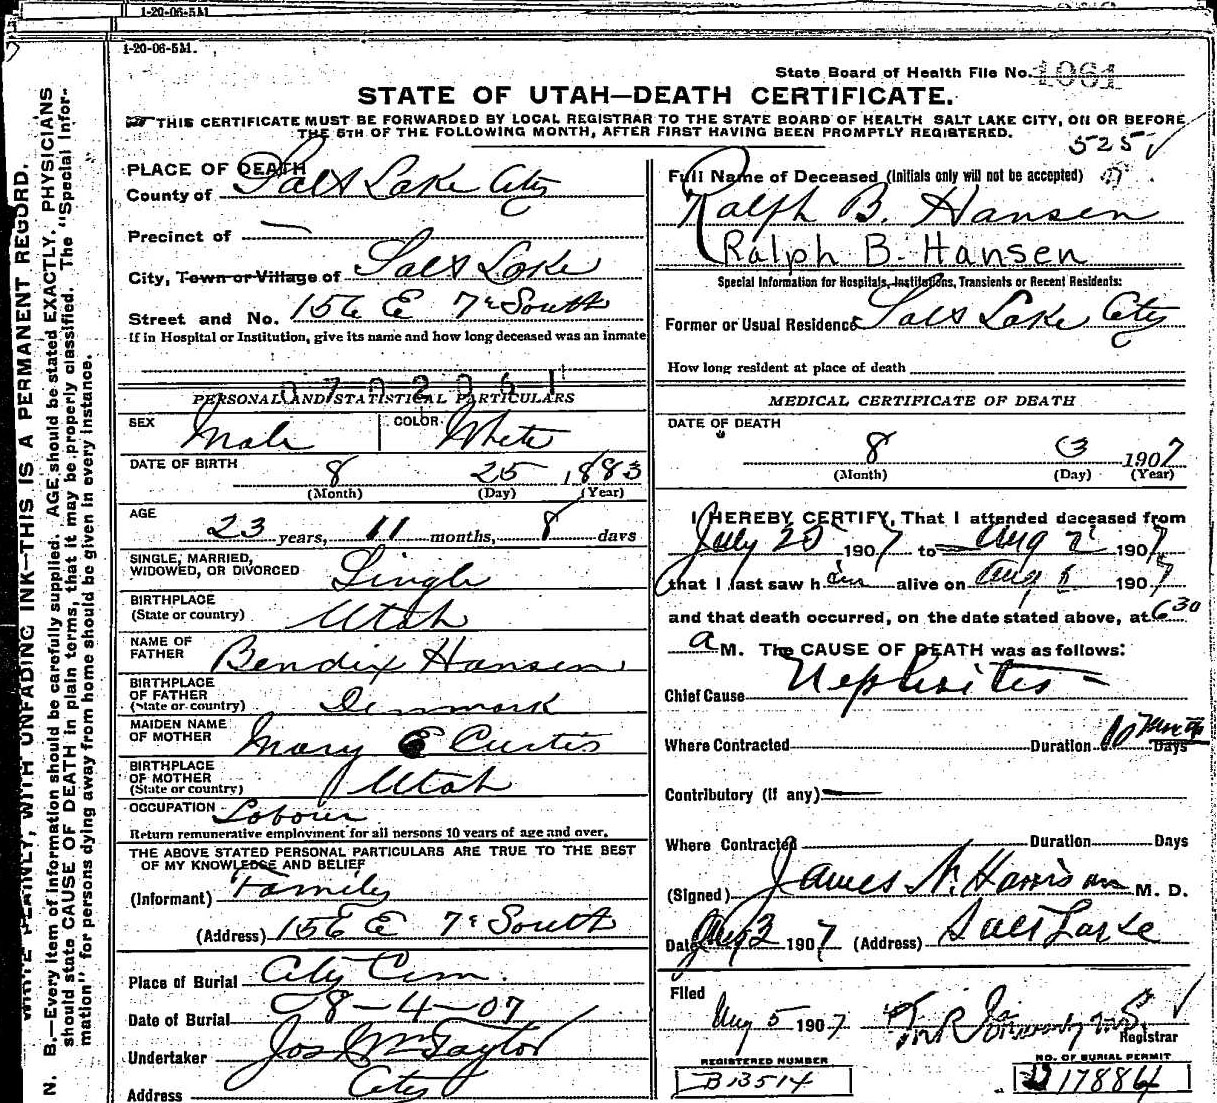 1-20-06-5M
1-20-06-5M.
State Board of Health File No. 1061
STATE OF UTAH—DEATH CERTIFICATE.
THIS CERTIFICATE MUST BE FORWARDED BY LOCAL REGISTRAR TO THE STATE BOARD OF HEALTH SALT LAKE CITY, ON OR BEFORE
THE 5TH OF THE FOLLOWING MONTH, AFTER FIRST HAVING BEEN PROMPTLY REGISTERED.
525
WRITE PLAINLY, WITH UNFADING INK—THIS IS A PERMANENT RECORD.
N. B.—Every item of information should be carefully supplied. AGE should be stated EXACTLY. PHYSICIANS
should state CAUSE OF DEATH in plain terms, that it may be properly classified. The "Special Infor-
mation" for persons dying away from home should be given in every instance.
PLACE OF DEATH
County of Salt Lake City
Precinct of
City, Town or Village of Salt Lake
Street and No. 156 E 7th South
If in Hospital or Institution, give its name and how long deceased was an inmate
PERSONAL AND STATISTICAL PARTICULARS
SEX Male COLOR White
DATE OF BIRTH 8 25 1883
(Month) (Day) (Year)
AGE
23 years, 11 months, 8 days
SINGLE, MARRIED,
WIDOWED, OR DIVORCED Single
BIRTHPLACE
(State or country) Utah
NAME OF
FATHER Bendix Hansen
BIRTHPLACE
OF FATHER
(State or country) Denmark
MAIDEN NAME
OF MOTHER Mary E Curtis
BIRTHPLACE
OF MOTHER
(State or country) Utah
OCCUPATION Laborer
Return remunerative employment for all persons 10 years of age and over.
THE ABOVE STATED PERSONAL PARTICULARS ARE TRUE TO THE BEST
OF MY KNOWLEDGE AND BELIEF
(Informant) Family
(Address) 156 E 7th South
Place of Burial City Cem.
Date of Burial 8-4-07
Undertaker Jos Wm Taylor
Address City
Full Name of Deceased (Initials only will not be accepted)
Ralph B. Hansen
Ralph B. Hansen
Special Information for Hospitals, Institutions, Transients or Recent Residents:
Former or Usual Residence Salt Lake City
How long resident at place of death
MEDICAL CERTIFICATE OF DEATH
DATE OF DEATH
8 3 1907
(Month) (Day) (Year)
I HEREBY CERTIFY, That I attended deceased from
July 25 1907 to Aug 2 1907,
that I last saw him alive on Aug 1 1907
and that death occurred, on the date stated above, at 6 30
a M. The CAUSE OF DEATH was as follows:
Chief Cause Nephritis
Where Contracted Duration Days
Contributory (If any)
Where Contracted Duration Days
(Signed) James N. Harrison M. D.
Date Aug 3 1907 (Address) Salt Lake
Filed
Aug 5 1907
Registrar
REGISTERED NUMBER
B13514
NO. OF BURIAL PERMIT
17884